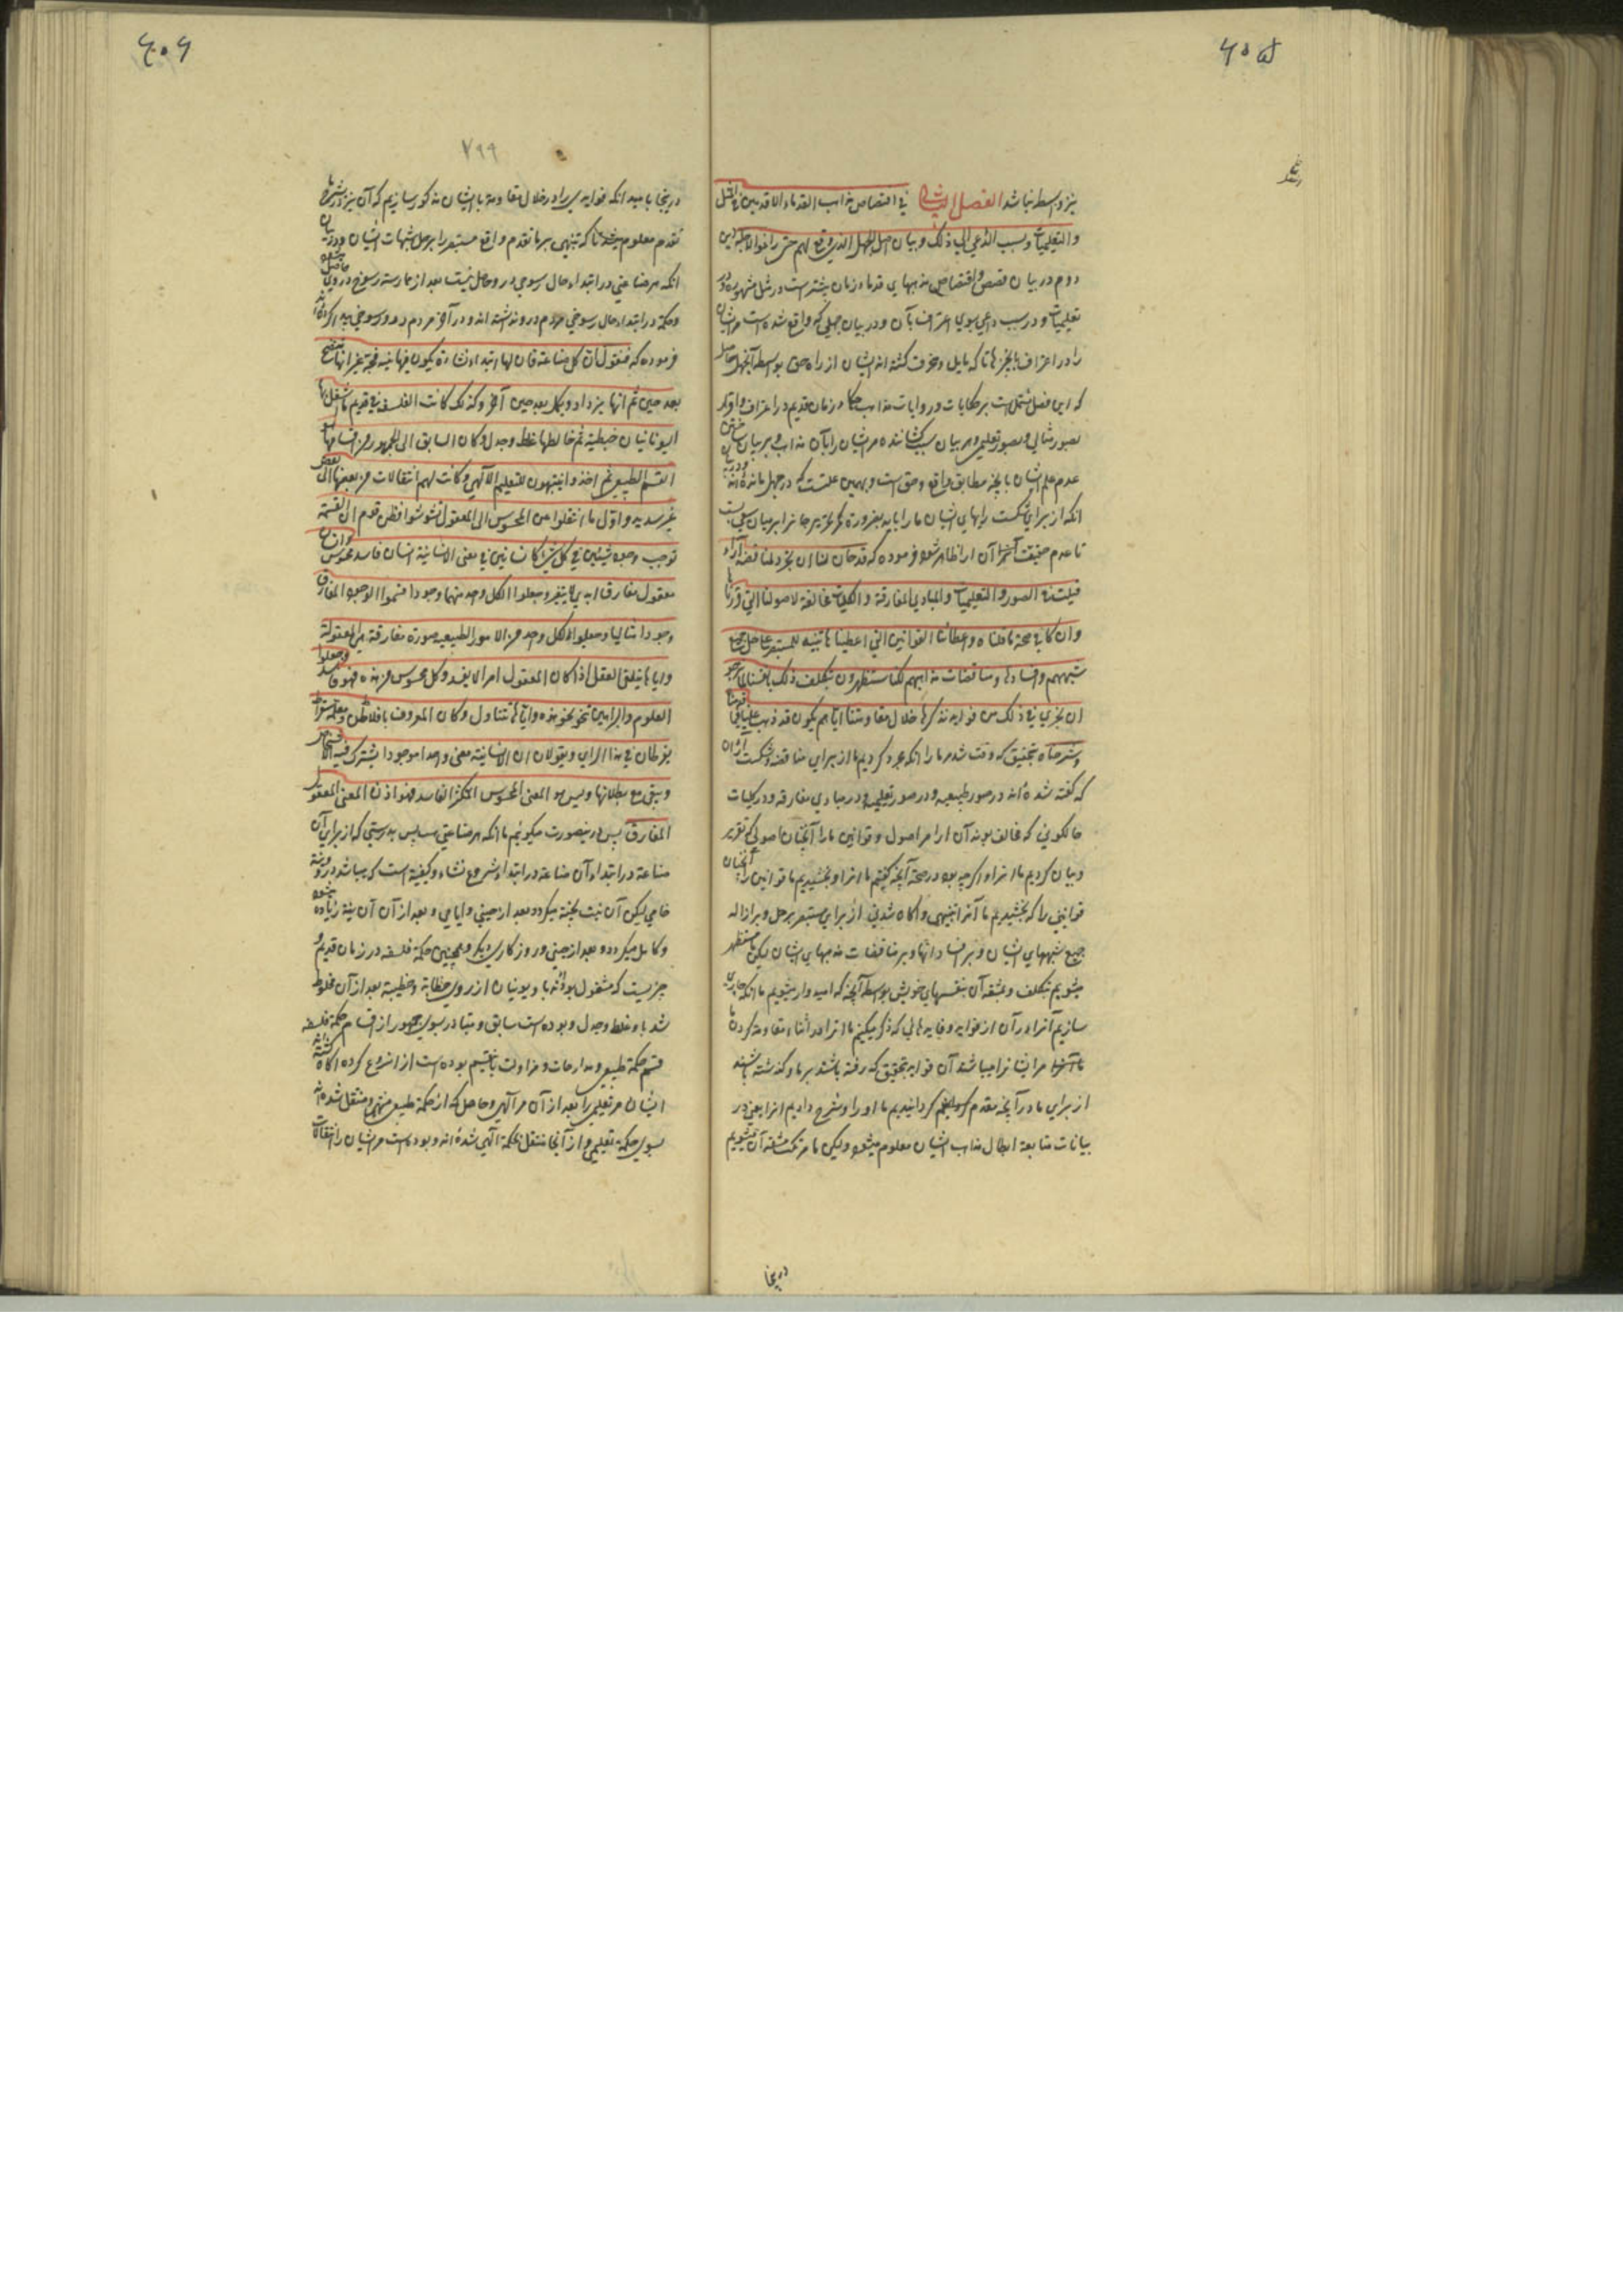 نیز واسطه نباشد الفصل الثانی فی اقتصاص مذاهب القدماء الاقدمین فی المثل
والتعلیمیات والسبب الداعی الی ذلک و بیان اصل الجهل الذی وقع لهم حتی زاغوا لاجله این
دوم در بیان قصص و اقتصاص مذهبهای قدما در زمان پیشتر است در مثل مشهوره و در
تعلیمیات و در سبب داعی بسوی اعتراف بآن و در بیان جهلی که واقع شده است مر ایشان
را در اعتراف تا که مایل و منحرف گشته اند ایشان از راه حق بواسطه آنجهل حاصل
که این فصل مشتمل است بر حکایات و روایات مذاهب حکما در زمان قدیم در اعتراف و اقرار
بصور مثالی و بصور تعلیمی و بر بیان سبب کشاننده مر ایشان را بآن مذاهب و بر بیان
عدم علم ایشان بآنچه مطابق واقع و حق است و بهمین علتست که در جهل مانده اند
انکه از برای شکست رایهای ایشان ما را باید بضرورة بر میان سعی بست
تا عدم حقیقت آن ارا ظاهر شود فرموده که قد حان لنا ان نتجرد لمناقضة آراء
قیلت فی الصور والتعلیمیات والمبادی المفارقة والکلیات مخالفة لاصولنا التی قررناها
وان کان فی صحة ما قلناه واعطائنا القوانین التی اعطیناها تنبیه للمستبصر علی حل جمیع
شبههم وافسادها ومناقضات مذاهبهم لکنا مستظهرون بتکلف ذلک بانفسنا لما نرجو
ان یجری فی ذلک من فواید نذکرها خلال مقاومتنا ایاهم یکون قد ذهب علینا فیما قدمناه
وشرحناه بتحقیق که وقت شد مر ما را انکه مجرد گردیم ما از برای مناقضه و شکست آرآن
که گفته شده اند در صور طبیعیه و در صور تعلیمیه و در مبادی مفارقه و در کلیات
حالکونی که مخالف بوند آن ارا مر اصول و قوانین ما را آنچنان اصولی که تقریر
و بیان کردیم ما انرا و اگرچه بود در صحة آنچه گفتیم ما انرا و بخشیدیم ما قوانین را آنچنان
قوانینی را که بخشیدیم ما آنرا تنبیهی و آگاه شدنی از برای مستبصر بر حل و بر ازاله
جمیع شبههای ایشان و بر افساد انها و بر مناقضات مذهبهای ایشان لیکن ما مستظهر
میشویم بتکلف و مشقه آن بنفسهای خویش بواسطه آنچه که امیدوار میشویم ما انکه جاری
سازیم آنرا در آن از فواید و فایده هائی که ذکر میکنیم ما انرا در اثناء مقاومه کردن ما
مر ایشانرا میباشد آن فواید بتحقیق که رفته باشند بر ما و گذشته باشند
از برای ما در آنچه مقدم گردانیدیم ما او را و شرح دادیم انرا یعنی در
بیانات متابعة ابطال مذاهب ایشان معلوم میشود ولیکن ما مرتکب مشقه آن میشویم
درینجا
درینجا بامید انکه فوایدی را در خلال مقاومة با ایشان مذکور سازیم که آن نیز در شرح ما
تقدم معلوم میشد تا که تنبیهی بر ما تقدم واقع مستبصر را بر حل شبهات ایشان و در بیان
انکه هر صناعتی در ابتداء حال رسوخی در و حاصل نیست بعد از ممارسة رسوخ در وی حاصل میشود
و حکمة در ابتداء حال رسوخی مردم در و نداشته اند و در آخر مردم در و رسوخی پیدا کرده اند
فرموده که فنقول ان کل صناعة فان لها ابتداء نشاءة یکون فیها نیة فجة غیر انها تنضج
بعد حین ثم انها یزداد ویکمل بعد حین آخر وکذلک کانت الفلسفة فی قدیم ما اشتغل بها
الیونانیان خطبیة ثم خالطها غلط وجدل وکان السابق الی الجمهور من اقسامها هو
القسم الطبیعی ثم اخذوا ینتبهون للتعلیم الآلهی وکانت لهم انتقالات من بعضها الی بعض
غیر سدیدة واول ما انتقلوا من المحسوس الی المعقول تشوشوا فظن قوم ان القسمة
توجب وجود شیئین فی کل شئ کانسانین فی معنی الانسانیة انسان فاسد محسوس وانسان
معقول مفارق ابدی لا یتغیر وجعلوا لکل واحد منهما وجودا فسموا الوجود المفارق
وجودا مثالیا وجعلوا لکل واحد من الامور الطبیعیة صورة مفارقة هی المعقولة
وایاها یتلقی العقل اذا کان المعقول امرا لا یفسد وکل محسوس من هذه فهو فاسد وجعلوا
العلوم والبراهین تنحو نحو هذه وایاها تتناول وکان المعروف بافلاطن ومعلمه سقراط
یفرطان فی هذا الرای ویقولان ان للانسانیة معنی واحدا موجودا یشترک فیه الاشخاص
ویبقی مع بطلانها ولیس هو المعنی المحسوس المتکثر الفاسد فهو اذن المعنی المعقول
المفارق پس درینصورت میگوئیم ما انکه هر صناعتی پس بدرستی که از برای آن
صناعة در ابتداء آن صناعة در ابتداء شروع نشاء و کیفیة است که میباشد در و نیة
خامی لیکن آن نیت پخته میگردد بعد از حینی و ایامی و بعد از آن آن نیة زیاده میشود
و کامل میگردد و بعد از حینی و روزگاری دیگر و همچنین حکمة فلسفه در زمان قدیم و
چیزیست که مشغول بوده اند باو یونیان از روی خطابة و خطبیة بعد از آن مخلوط
شد باو غلط و جدل و بوده است سابق و متبادر بسوی جمهور از اقسام حکمة فلسفه
قسم حکمة طبیعی و مدارجات و مزاولت باینقسم بوده است از انشروع کرده اکاه گشته اند
ایشان مر تعلیمی را بعد از آن مر آلهی و حاصل که از حکمة طبیعی منتهی و منتقل شده اند
بسوی حکمة تعلیمی و از آنجا منتقل بحکمة آلهی شده اند و بوده است مر ایشان را انتقالات